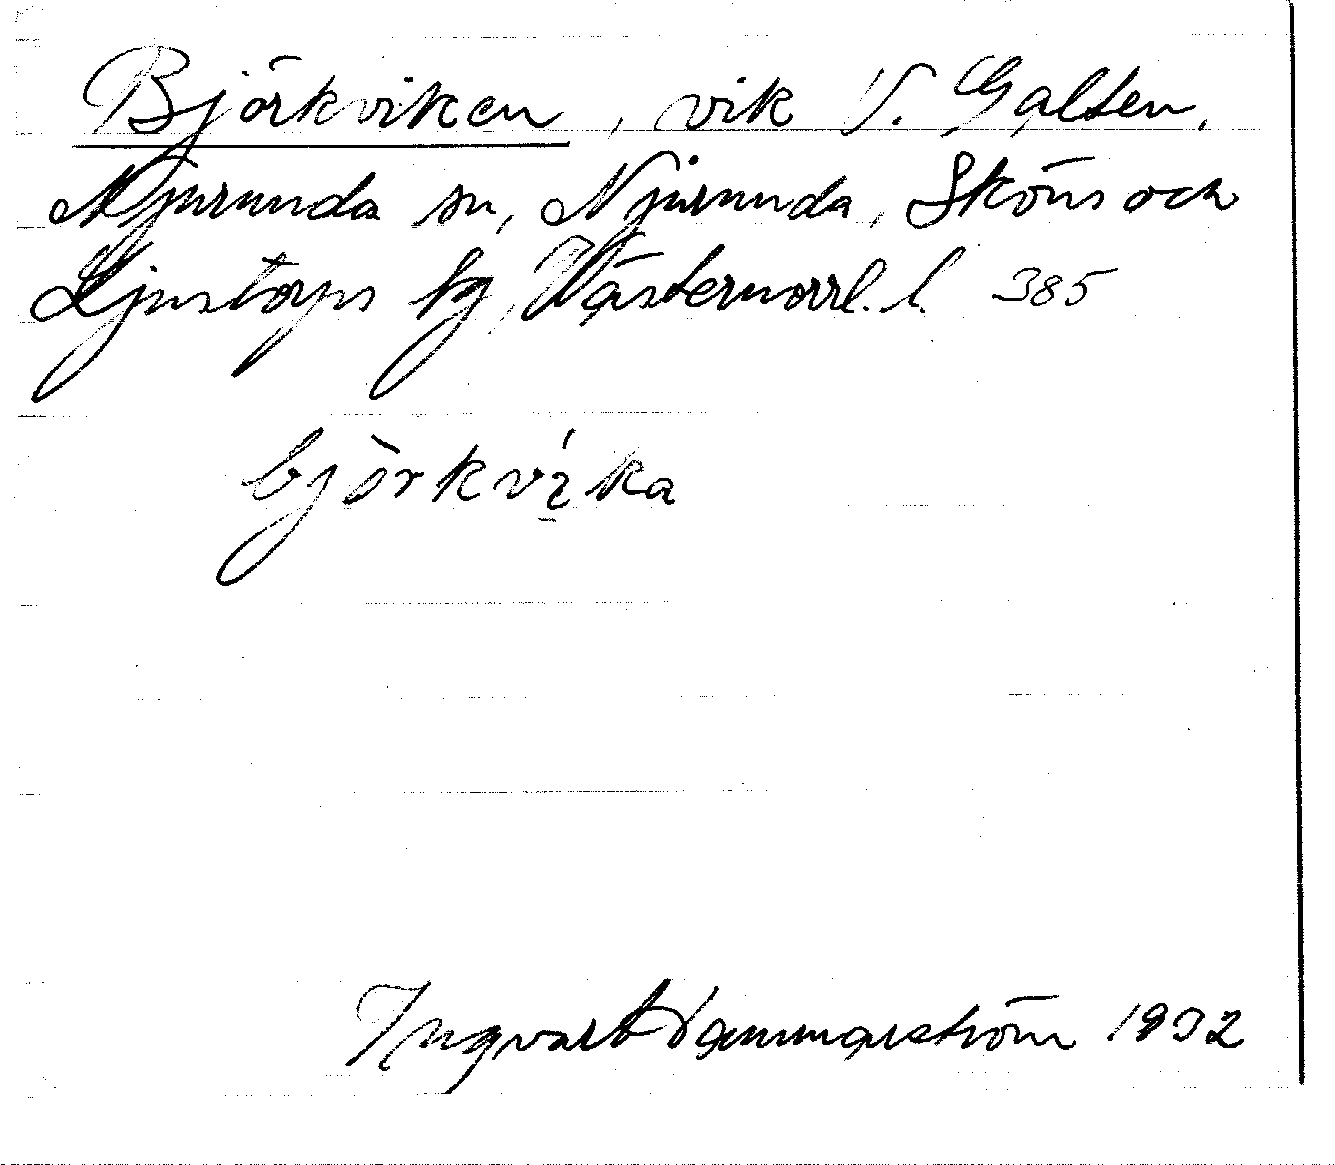 Björkviken, vik V. Galten,
Njurunda sn, Njurunda, Sköns och
Ljustorps tg, Västernorrl. l. 385
björkvìka
Ingvart Hammarström 1932